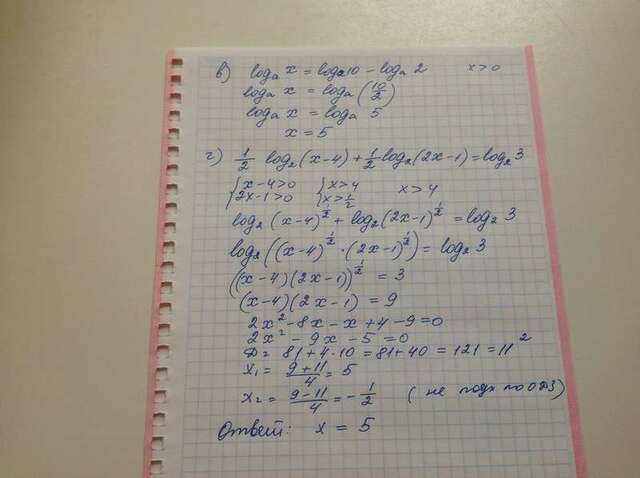 в) logₐ x = logₐ10 − logₐ 2    x>0
logₐ x = logₐ (10/2)
logₐ x = logₐ 5
x = 5
г) 1/2 log₂(x−4) + 1/2 log₂(2x−1) = log₂3
{x−4>0 {x>4    x>4
{2x−1>0 {x>1/2
log₂ (x−4)^1/2 + log₂(2x−1)^1/2 = log₂ 3
log₂((x−4)^1/2 · (2x−1)^1/2) = log₂ 3
((x−4)(2x−1))^1/2 = 3
(x−4)(2x−1) = 9
2x²−8x−x+4−9=0
2x²−9x−5=0
D = 81+4·10 = 81+40 = 121 = 11²
x₁ = (9+11)/4 = 5
x₂ = (9−11)/4 = −1/2    (не подх по ОДЗ)
Ответ: x = 5